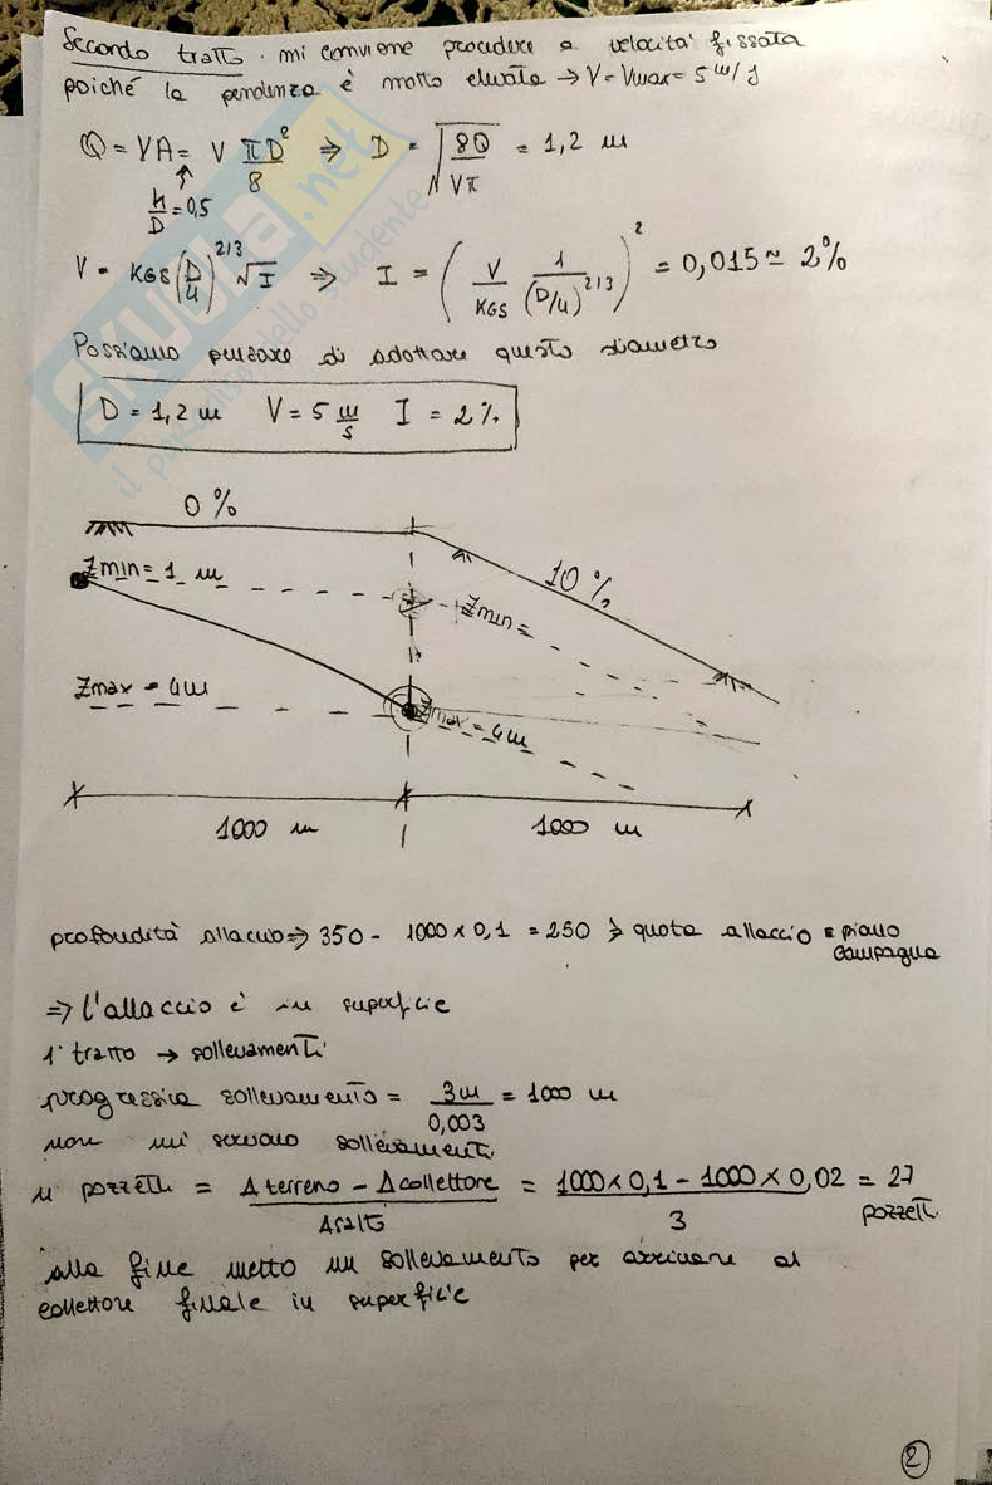 Secondo tratto. mi conviene procedere a velocità fissata
poiché la pendenza è molto elevata → V = Vmax = 5 m/s
Q = VA = V πD²/8 ⇒ D = √(8Q/Vπ) = 1,2 m
h/D = 0,5
V = KGS (D/4)^2/3 √I ⇒ I = (V/KGS 1/(D/4)^2/3)² = 0,015 ≃ 2%
Possiamo pensare di adottare questo diametro
D = 1,2 m V = 5 m/s I = 2%
0%
Zmin = 1 m
10%
Zmin =
Zmax = 4m
Zmax = 4m
1000 m 1000 m
profondità allaccio ⇒ 350 - 1000 x 0,1 = 250 ⇒ quota allaccio = piano
campagna
⇒ l'allaccio è in superficie
1° tratto → sollevamenti
progressiva sollevamento = 3m/0,003 = 1000 m
non mi servono sollevamenti
n pozzetti = (Δterreno - Δcollettore)/Δsalto = (1000 x 0,1 - 1000 x 0,02)/3 = 27
pozzetti
alla fine metto un sollevamento per arrivare al
collettore finale in superficie
2
SKUOLA.net
il paradiso dello studente